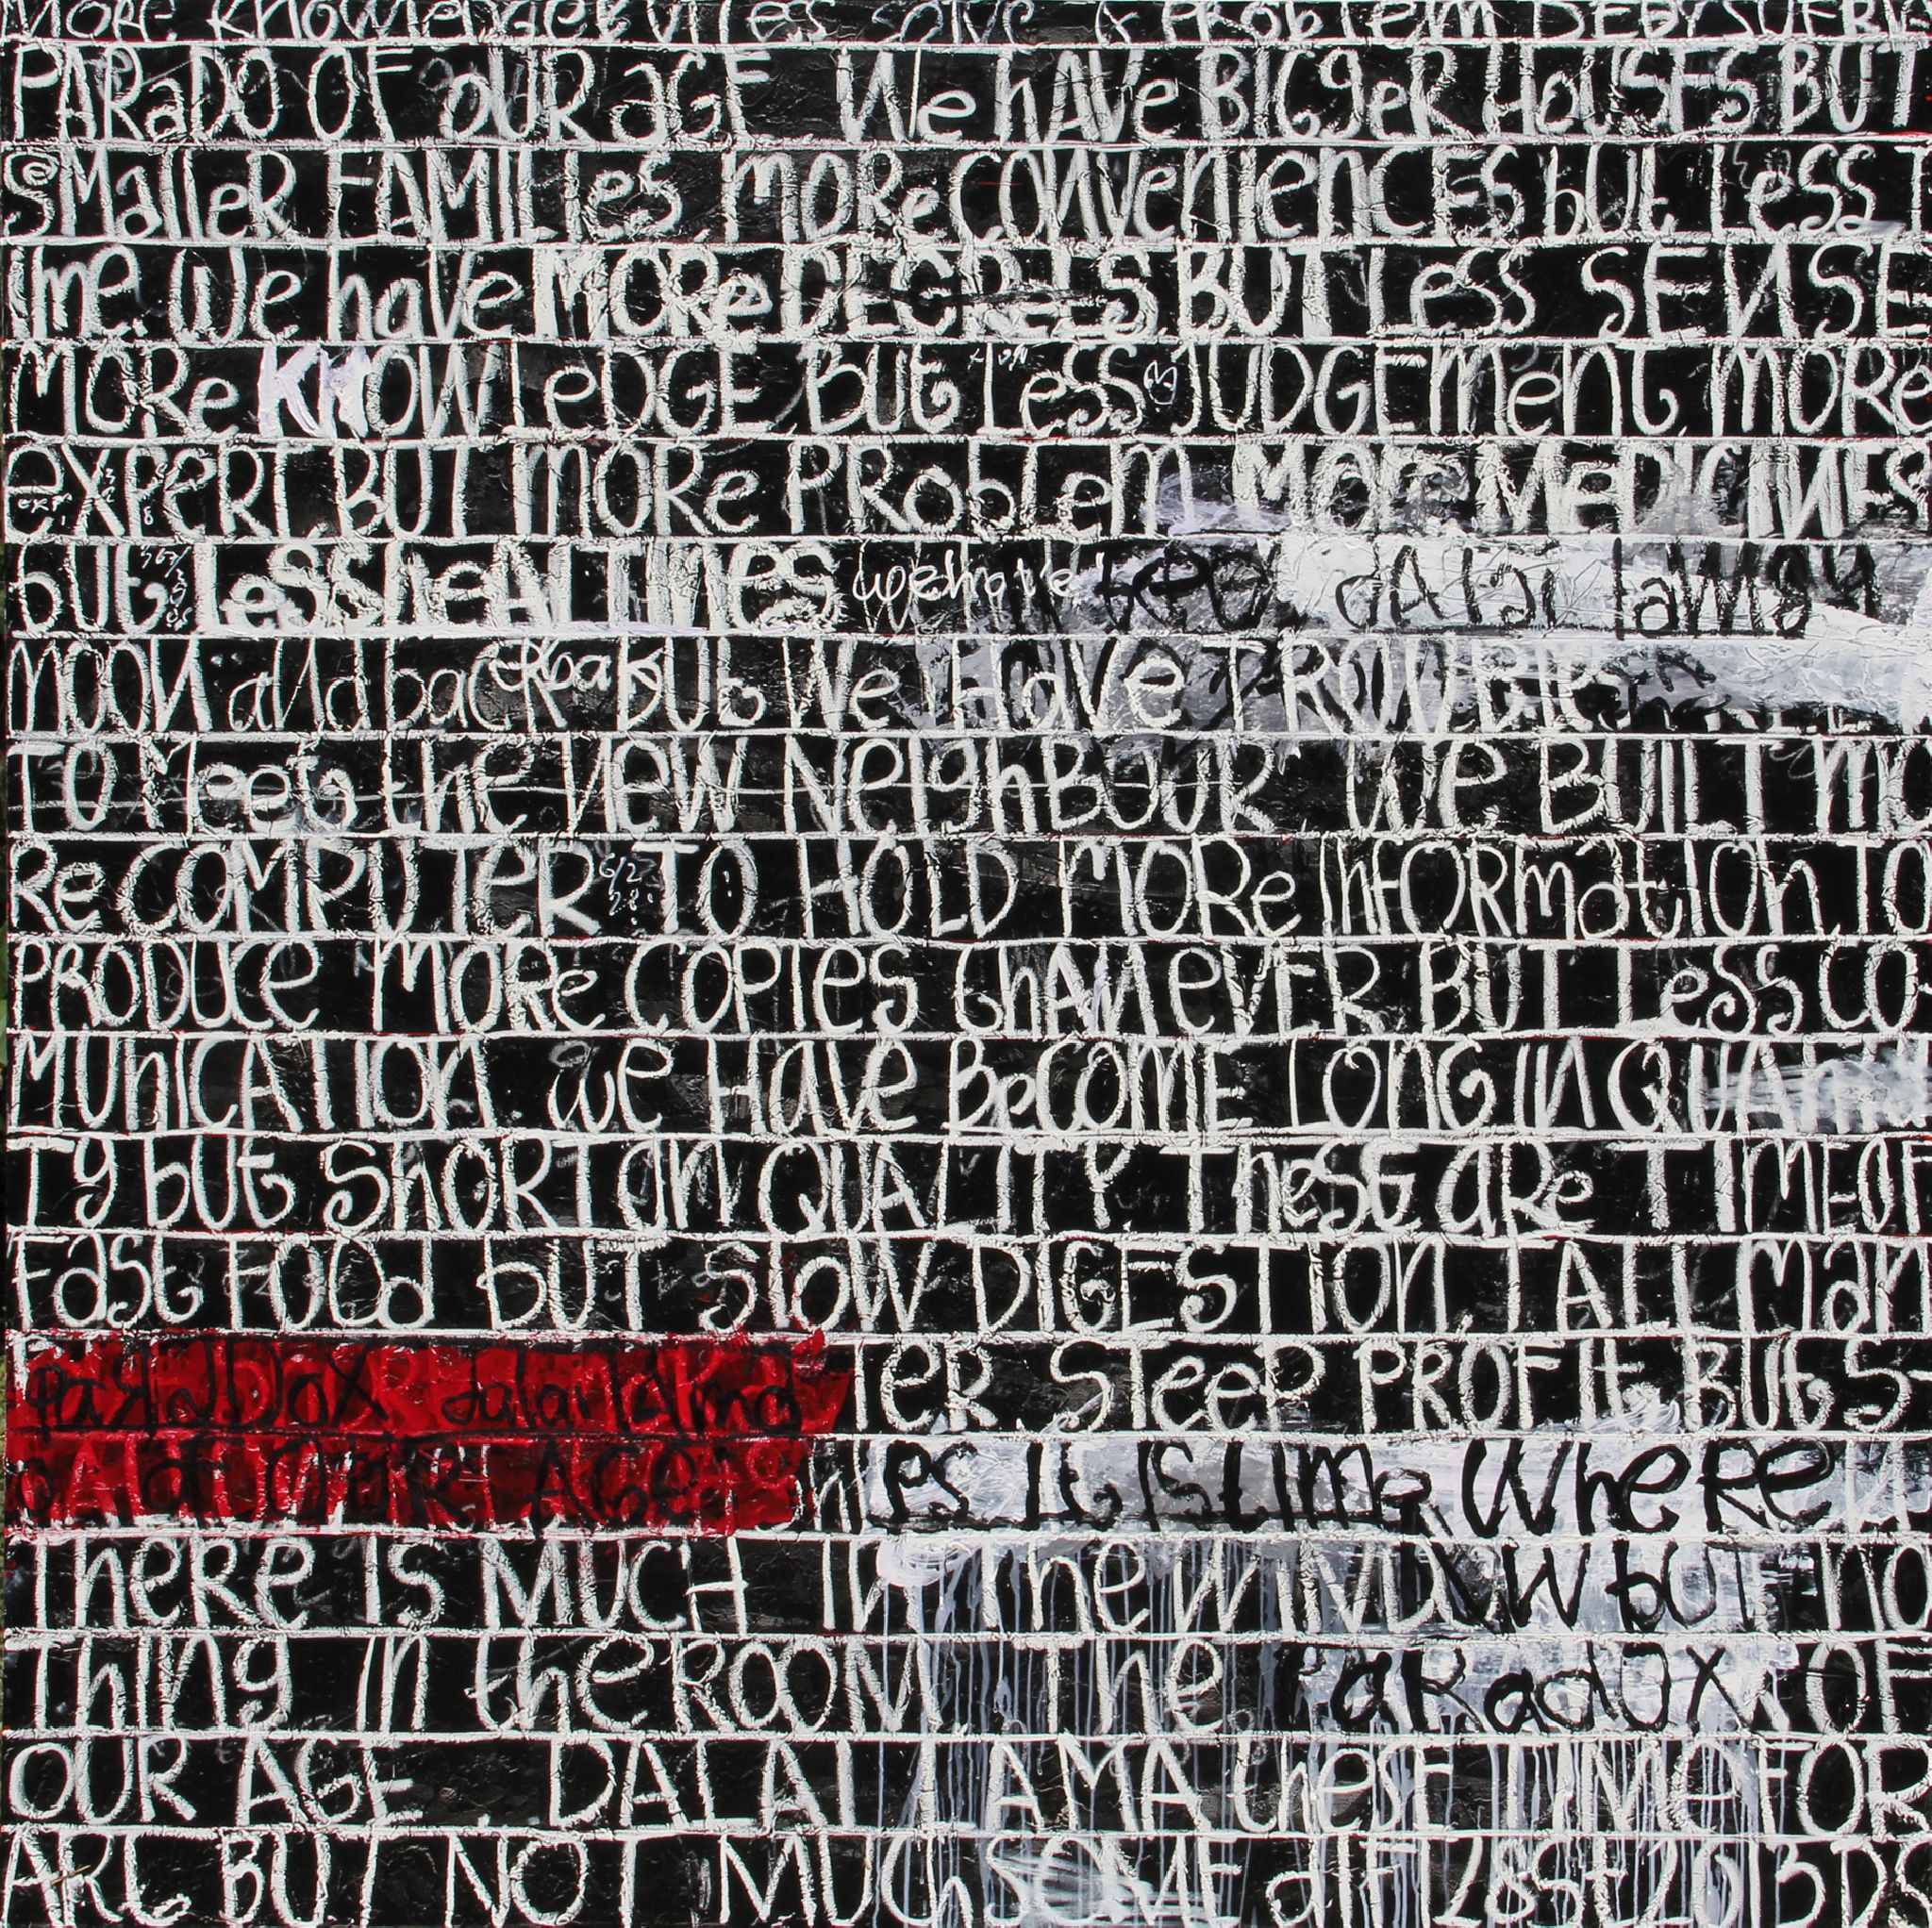 MORE KNOWLEDGE SOLVE A PROBLEM
PARADO OF OUR AGE We hAVe BIGgeR HOUSES BUT
SMalleR FAMILIes MORe CONVenienCES bUt Less T
Ime We haVe MORe DEGReES BUT Less SENSE
MORe KNOWLeDGE BUt LeSS JUDGEment MORe
eXPeRT BUT MORe PRobLem MORe MeDICINES
bUt LeSS heALTInes wehave dAlai lama
MOON aNd back BUt We HaVe TROUBle
TO Meet the NEW NeIghBOUR We BUILT MO
Re COMPUTER TO HOLD MORe InFORMatIOn TO
PRODUCe MORe COPIES thAN eVER BUT Less CO
MUnICATIOn we HAVe BeCOME LONG IN QUANTI
TY bUt ShORT On QUALITY TheSE aRe TIMEOF
Fast FOOd bUT SlOW DIGESTIOn TALL Man
PaRaDoX dalai lAma TeR STeeP PROFIt BUt S
AGE It IS tIme WheRe
TheRe IS MUCH In The WINDOW bUT no
ThIng In the ROOM The PaRadOX OF
OUR AGE. DALAI LAMA thesE TIMe FOR
ARE BUT NOT MUCh SOME dIF 28St 2013 DS